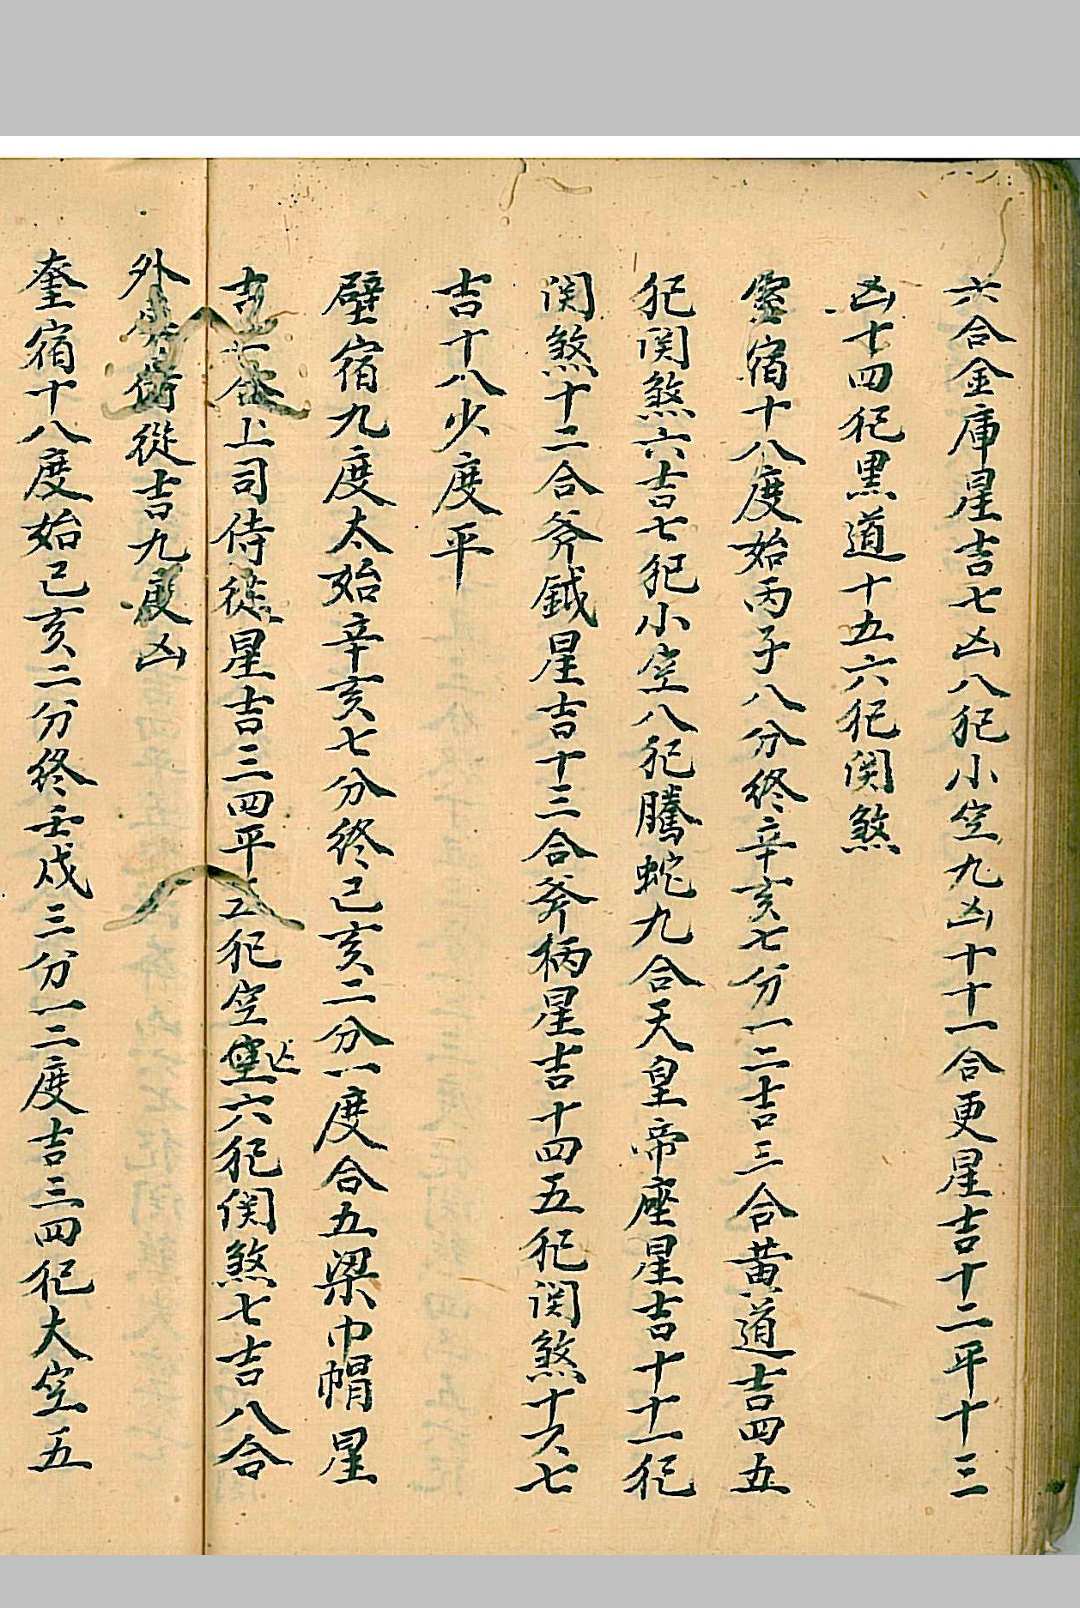 六合金庫星吉七凶八犯小空九凶十十一合更星吉十二平十三
凶十四犯黑道十五六犯関煞
室宿十八度始丙子八分終辛亥七分一二吉三合黄道吉四五
犯関煞六吉七犯小空八犯騰蛇九合天皇帝座星吉十十一犯
関煞十二合斧鉞星吉十三合斧柄星吉十四五犯関煞十六七
吉十八少度平
壁宿九度太始辛亥七分終己亥二分一度合五梁巾帽星
吉二合上司侍從星吉三四平五犯空室六犯関煞七吉八合
外侍從吉九度凶
奎宿十八度始己亥二分終壬戌三分一二度吉三四犯大空五